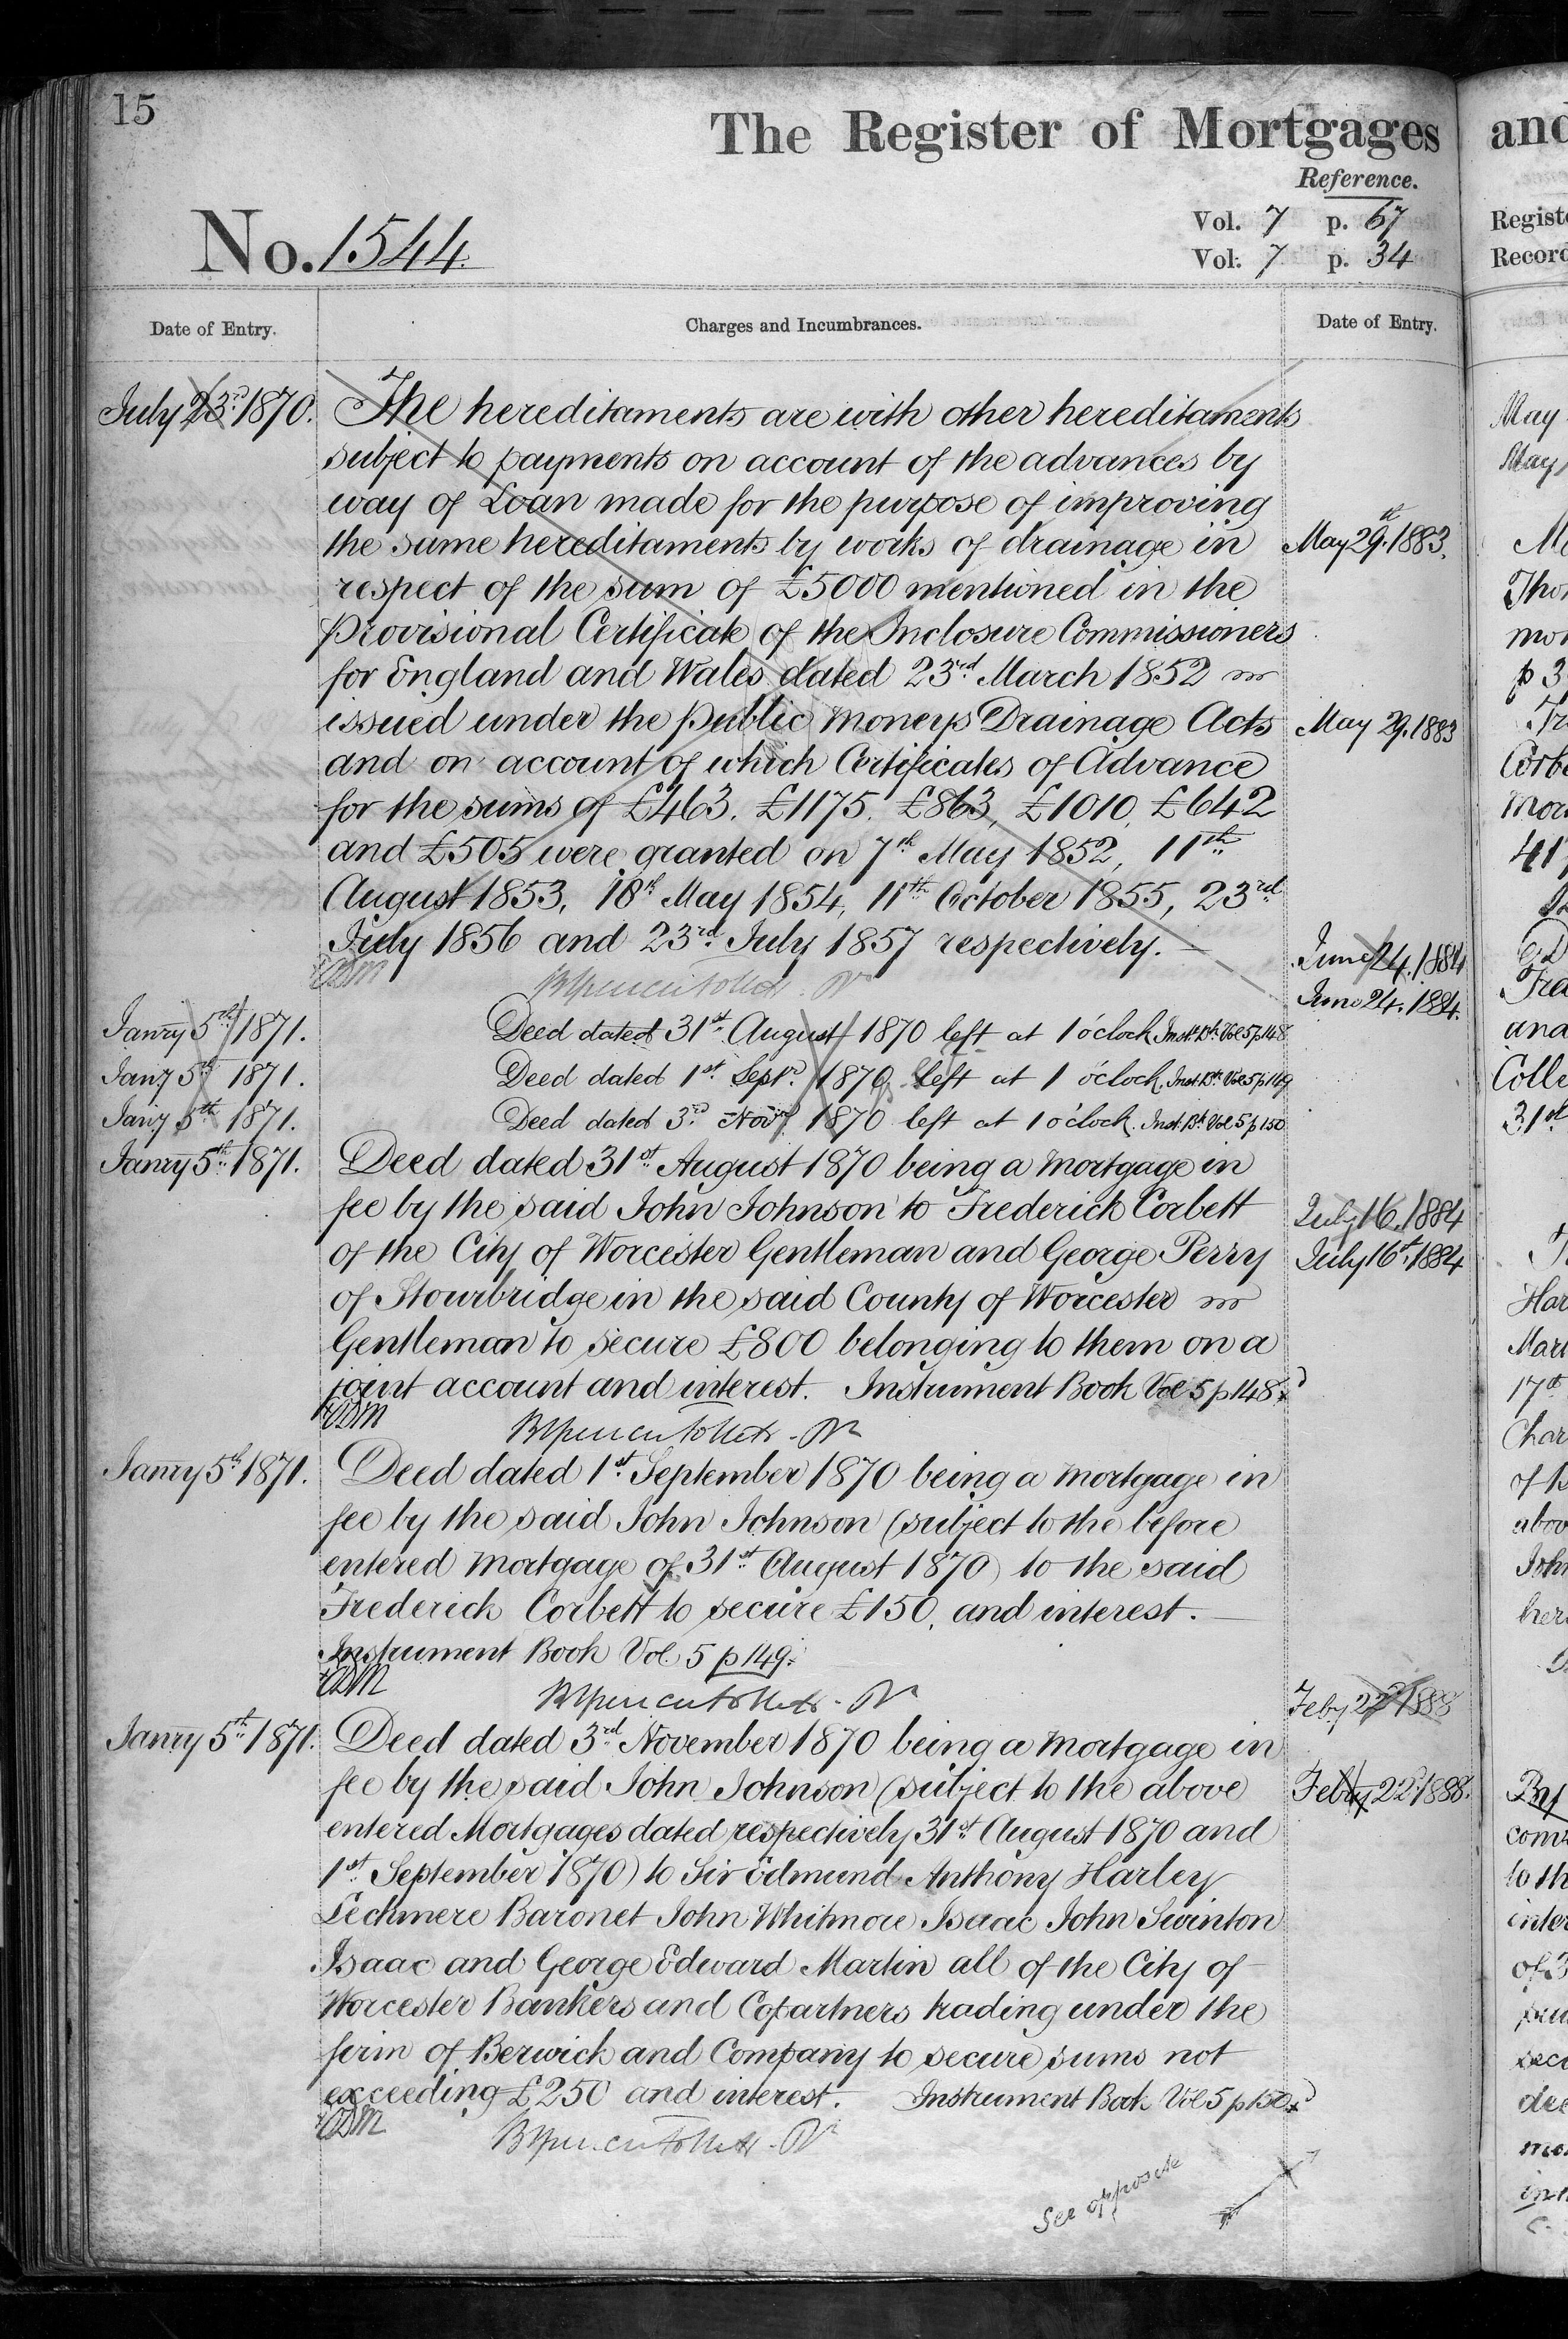 15
The Register of Mortgages
Reference.
No. 1544.
Vol. 7 p. 67
Vol. 7 p. 34
Date of Entry.
Charges and Incumbrances.
Date of Entry.
July 23rd 1870. The hereditaments are with other hereditaments
subject to payments on account of the advances by
way of Loan made for the purpose of improving
the same hereditaments by works of drainage in
respect of the sum of £5000 mentioned in the
Provisional Certificate of the Inclosure Commissioners
for England and Wales dated 23rd March 1852
issued under the Public Moneys Drainage Acts
and on account of which Certificates of Advance
for the sums of £463. £1175. £863, £1010, £642
and £505 were granted on 7th May 1852, 11th
August 1853, 18th May 1854, 11th October 1855, 23rd
July 1856 and 23rd July 1857 respectively.
Janry 5th 1871. Deed dated 31st August 1870 left at 1 o'clock Inst. Bk. Vol 5 p 148
Janry 5th 1871. Deed dated 1st Sept. 1870 left at 1 o'clock. Inst. Bk. Vol 5 p 149
Janry 5th 1871. Deed dated 3rd Novr 1870 left at 1 o'clock. Inst. Bk. Vol 5 p 150
Janry 5th 1871. Deed dated 31st August 1870 being a Mortgage in
fee by the said John Johnson to Frederick Corbett
of the City of Worcester Gentleman and George Perry
of Stourbridge in the said County of Worcester
Gentleman to secure £800 belonging to them on a
joint account and interest. Instrument Book Vol 5 p 148.
Janry 5th 1871. Deed dated 1st September 1870 being a Mortgage in
fee by the said John Johnson (subject to the before
entered Mortgage of 31st August 1870) to the said
Frederick Corbett to secure £150, and interest.
Instrument Book Vol. 5 p 149.
Janry 5th 1871. Deed dated 3rd November 1870 being a Mortgage in
fee by the said John Johnson (subject to the above
entered Mortgages dated respectively 31st August 1870 and
1st September 1870) to Sir Edmund Anthony Harley
Lechmere Baronet John Whitmore Isaac John Swinton
Isaac and George Edward Martin all of the City of
Worcester Bankers and Copartners trading under the
firm of Berwick and Company to secure sums not
exceeding £250 and interest. Instrument Book Vol 5 p 150
See opposite
May 29th 1883.
May 29. 1883
June 24. 1884
June 24. 1884.
July 16. 1884
July 16th 1884
Feby 22d 1888
Febry 22d 1888.
and
May
May